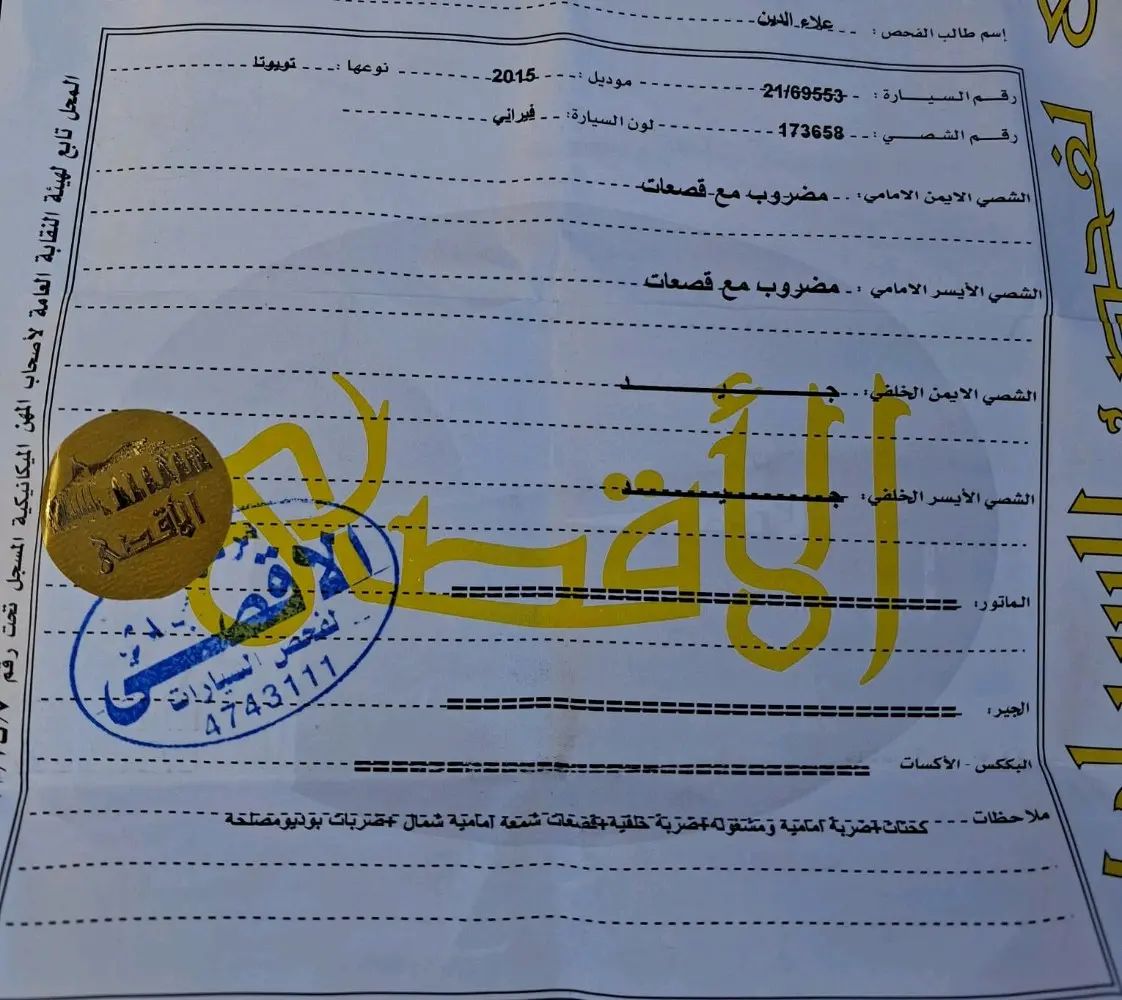 إسم طالب الفحص: علاء الدين
رقم السيارة: 21/69553 موديل: 2015 نوعها: تويوتا
رقم الشصي: 173658 لون السيارة: فيراني
الشصي الايمن الامامي: مضروب مع قصعات
الشصي الأيسر الامامي: مضروب مع قصعات
الشصي الايمن الخلفي: جيد
الشصي الأيسر الخلفي: جيد
الماتور: ==============================
الجير: ==============================
البككس - الأكسات ==============================
ملاحظات كختات+ضربة امامية ومشغوله+ضربة خلفية+قصعات شمعة امامية شمال +ضربات بوديومصلحة
الأقصى
الأقصى
الاقصى
لفحص السيارات
4743111
المحل تابع لهيئة النقابة العامة لأصحاب المهن الميكانيكية المسجل تحت رقم
لفحص